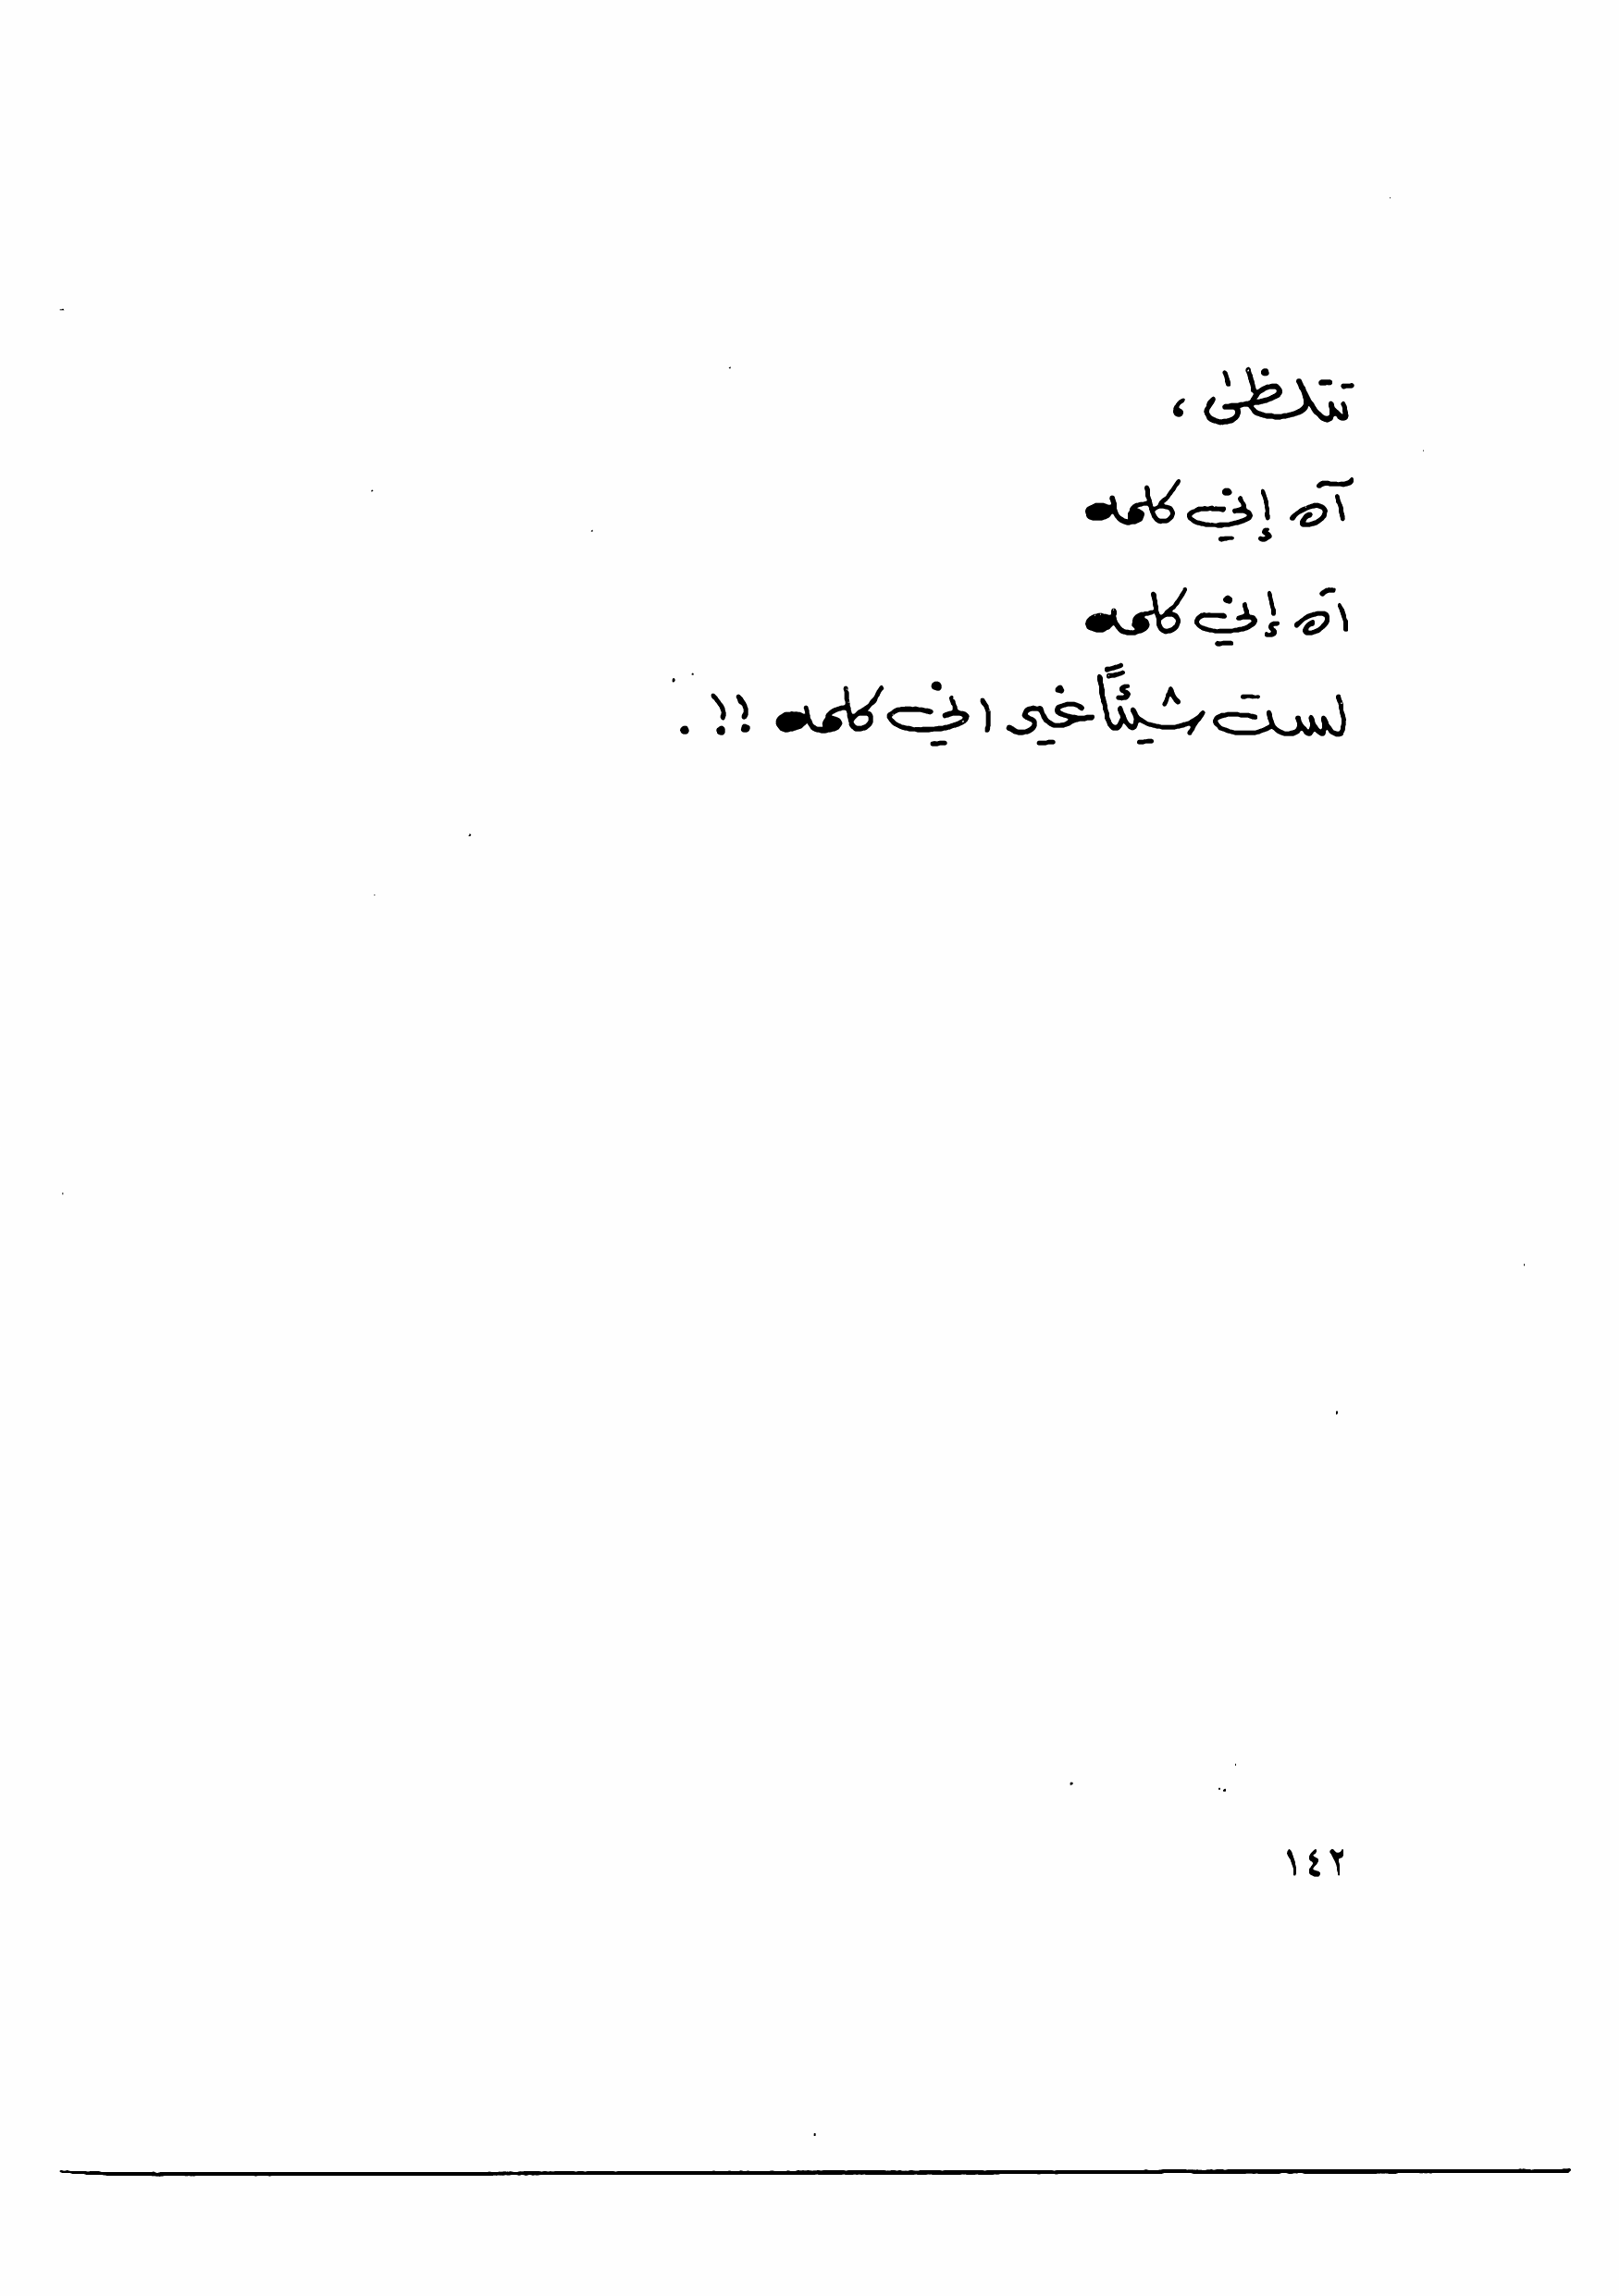 تتلظىٰ ،
آه إني كلمه
آه إني كلمه
لست شيئًا غير اني كلمه !! .
١٤٢